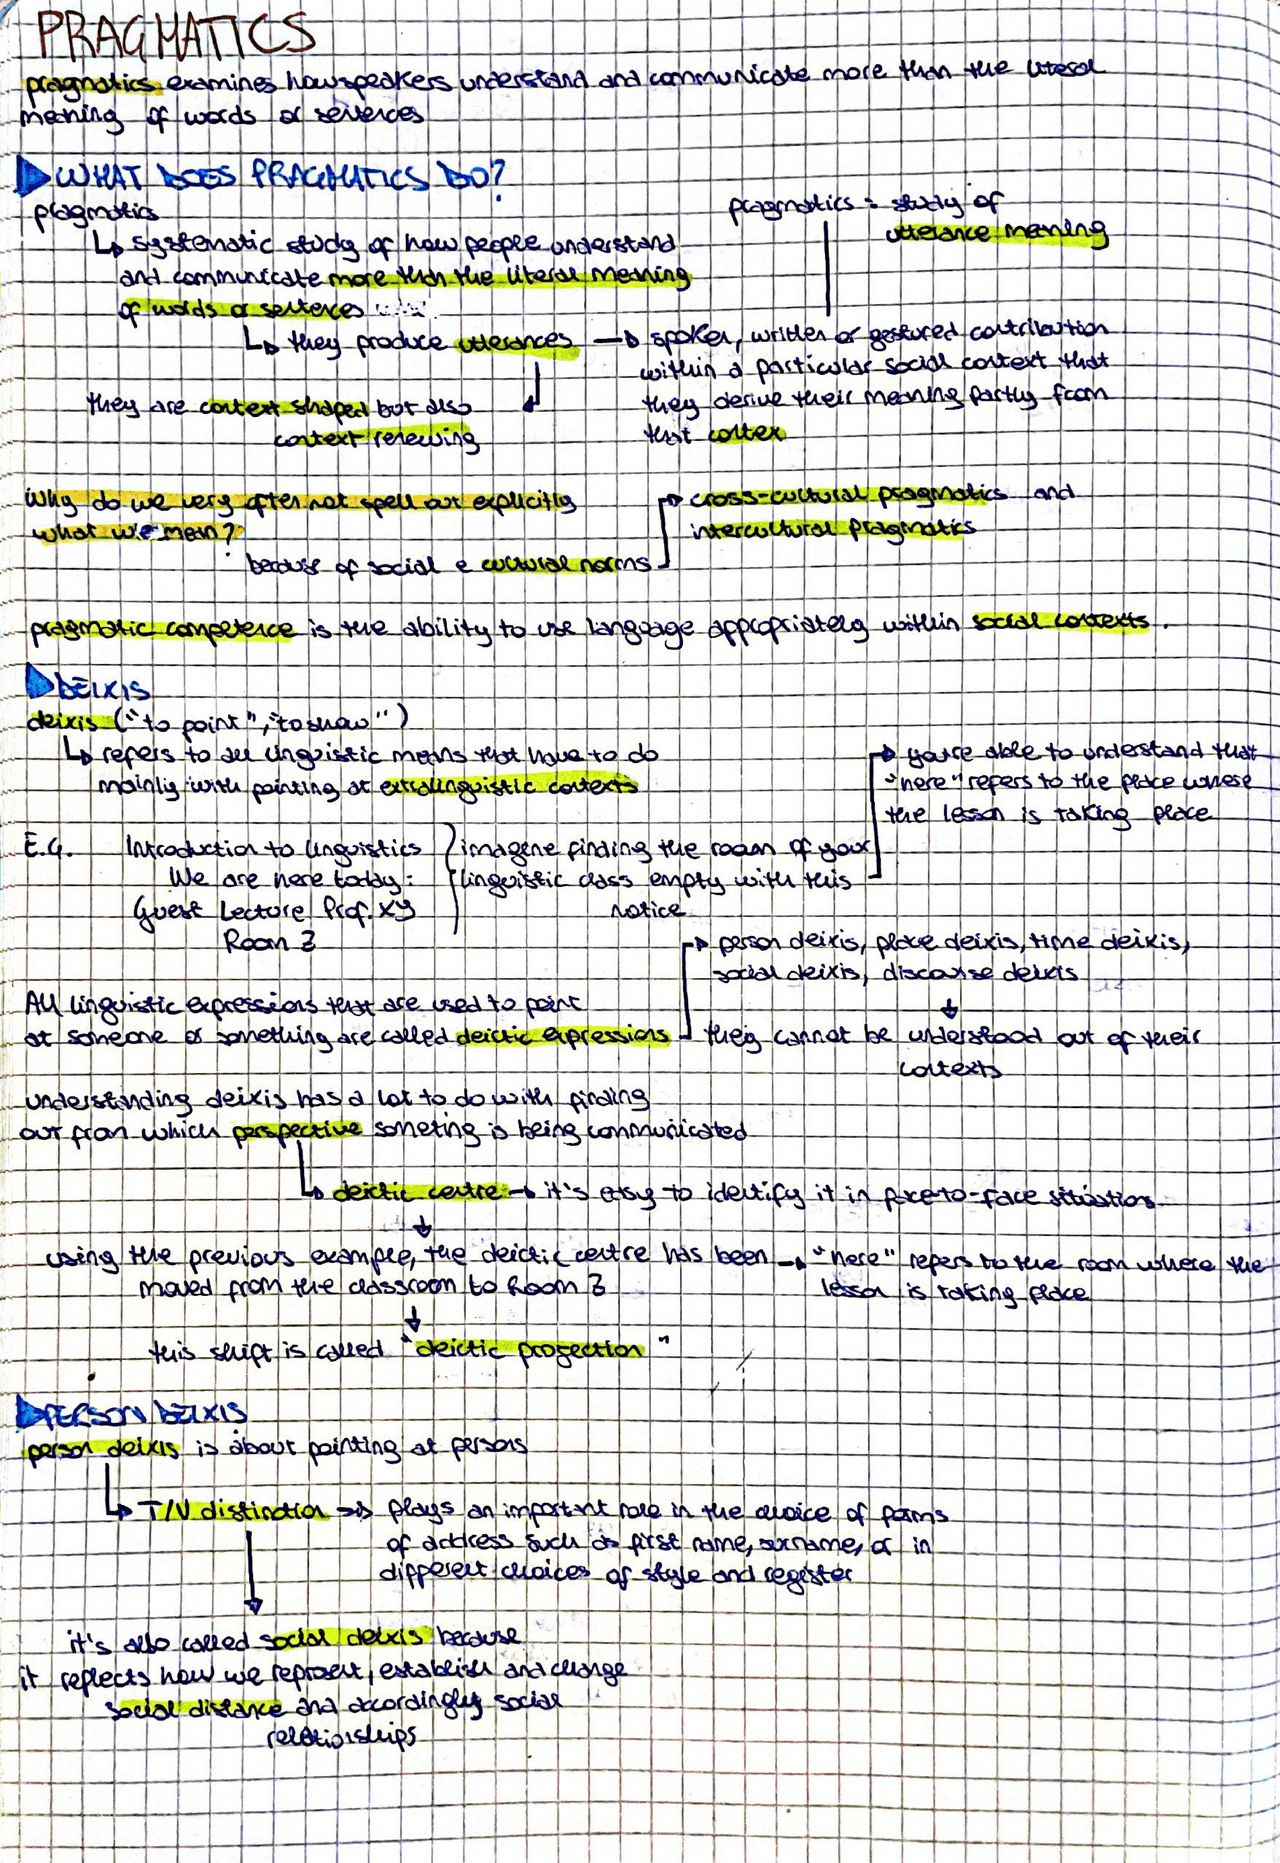 PRAGMATICS
pragmatics examines how speakers understand and communicate more than the literal
meaning of words or sentences
WHAT DOES PRAGMATICS DO?
pragmatics
↳ systematic study of how people understand
and communicate more than the literal meaning
of words or sentences
↳ they produce utterances →
pragmatics = study of
utterance meaning
spoken, written or gestured contribution
within a particular social context that
they derive their meaning partly from
that contex
they are context shaped but also
context renewing
Why do we very often not spell out explicitly
what we mean?
because of social e cultural norms
→ cross-cultural pragmatics and
intercultural pragmatics
pragmatic competence is the ability to use language appropriately within social contexts.
DEIXIS
deixis ("to point", "to show")
↳ refers to all linguistic means that have to do
mainly with pointing at extralinguistic contexts
→ you're able to understand that
"here" refers to the place where
the lesson is taking place
E.G. Introduction to linguistics
We are here today:
Guest Lecture Prof. XY
Room 3
imagine finding the room of your
linguistic class empty with this
notice
→ person deixis, place deixis, time deixis,
social deixis, discourse deixis
All linguistic expressions that are used to point
at someone or something are called deictic expressions
they cannot be understood out of their
contexts
understanding deixis has a lot to do with finding
out from which perspective someting is being communicated
↳ deictic centre → it's easy to identify it in face-to-face situations
using the previous example, the deictic centre has been
moved from the classroom to Room 3
→ "here" refers to the room where the
lesson is taking place
this shift is called "deictic projection"
PERSON DEIXIS
person deixis is about pointing at persons
↳ T/V distinction → plays an important role in the choice of forms
of address such as first name, surname, or in
different choices of style and register
it's also called social deixis because
it reflects how we represent, establish and change
social distance and accordingly social
relationships